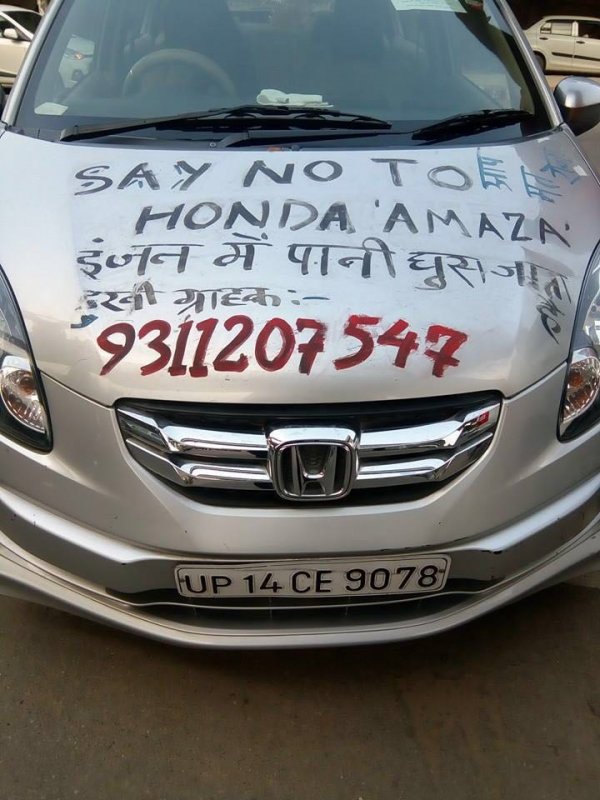 SAY NO TO
HONDA 'AMAZA'
इंजन में पानी घुस जाता
दुखी ग्राहक:-
9311207547
UP 14 CE 9078